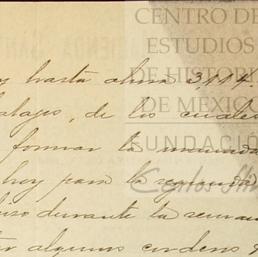 CENTRO DE
ESTUDIOS
DE HISTORIA
DE MÉXICO
FUNDACIÓN
Carlos Slim
y hasta ahora 3,114.
bajos, de los cuales
formar la
hoy para la segunda
durante la semana
algunos